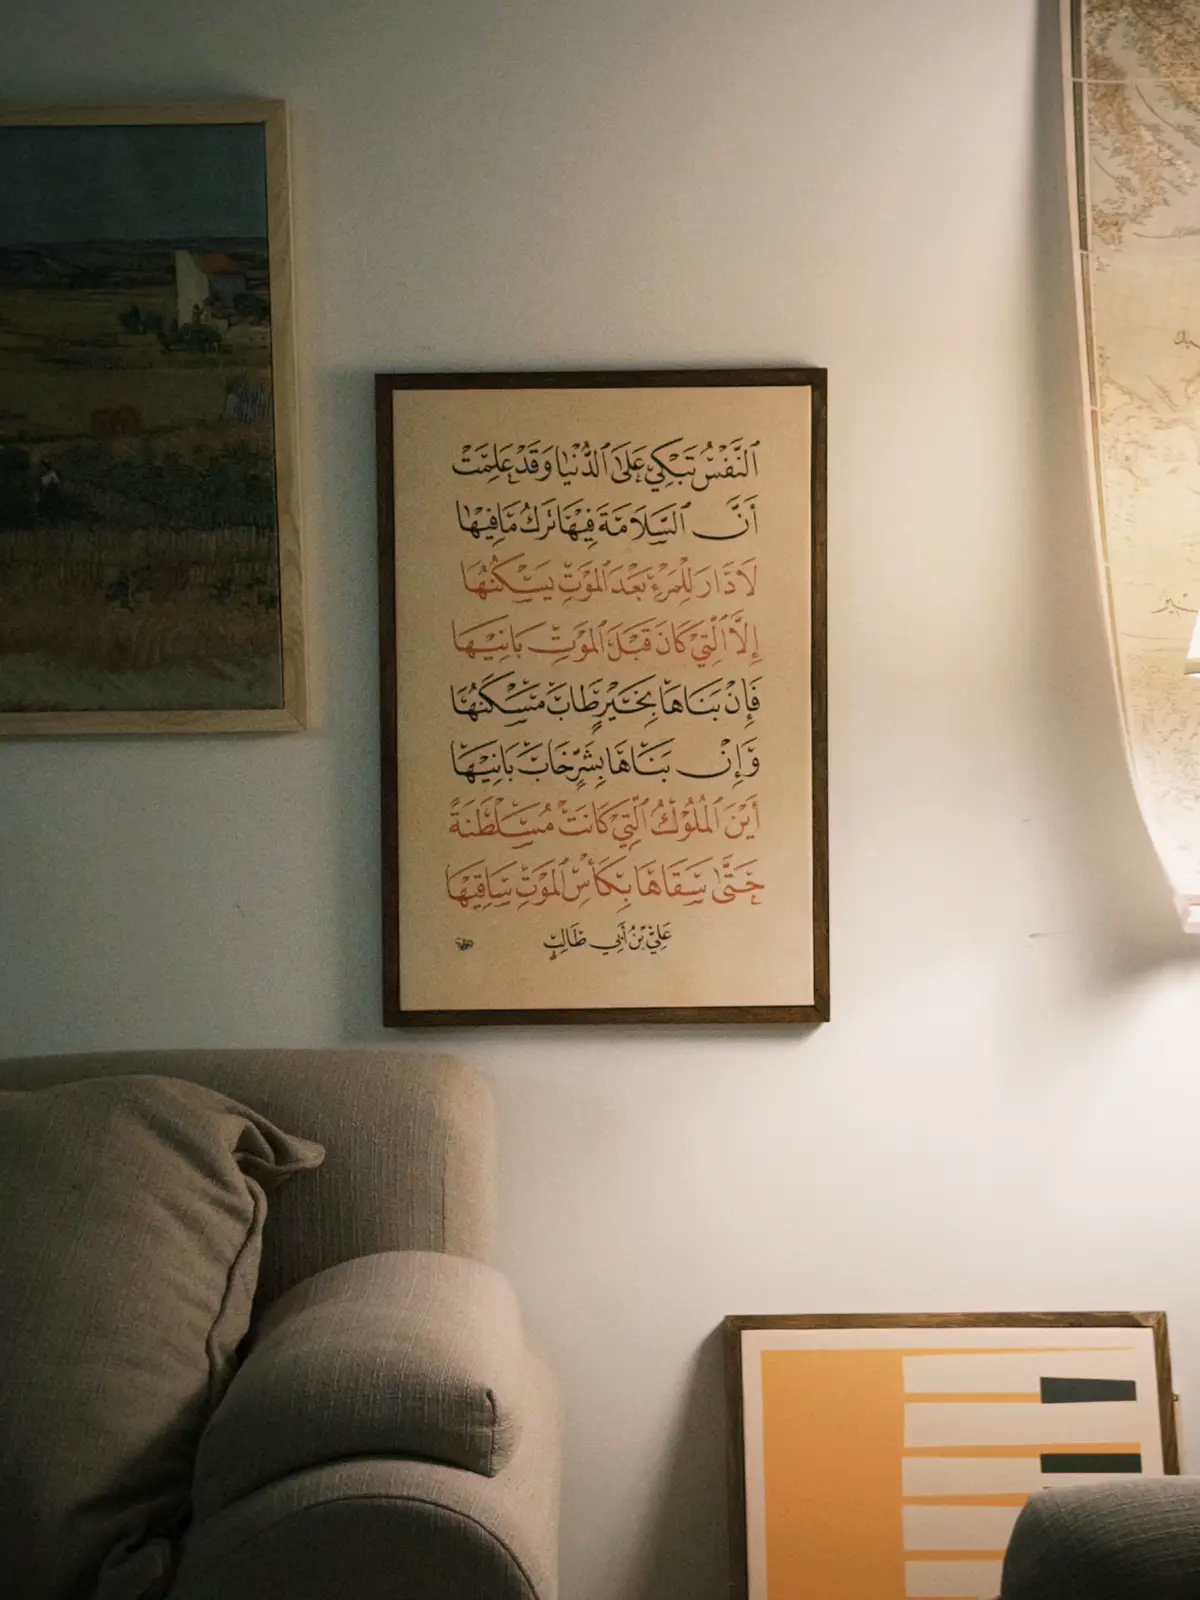 ٱلنَّفْسُ تَبْكِي عَلَىٰ ٱلدُّنْيَا وَقَدْ عَلِمَتْ
أَنَّ ٱلسَّلَامَةَ فِيْهَا تَرْكُ مَا فِيْهَا
لَا دَارَ لِلْمَرْءِ بَعْدَ ٱلمَوْتِ يَسْكُنُهَا
إِلَّا ٱلَّتِي كَانَ قَبْلَ ٱلمَوْتِ بَانِيْهَا
فَإِنْ بَنَاهَا بِخَيْرٍ طَابَ مَسْكَنُهَا
وَإِنْ بَنَاهَا بِشَرٍّ خَابَ بَانِيْهَا
أَيْنَ ٱلْمُلُوْكُ ٱلَّتِي كَانَتْ مُسَلْطَنَةً
حَتَّىٰ سَقَاهَا بِكَأْسِ ٱلمَوْتِ سَاقِيْهَا
عَلِيُّ بْنُ أَبِي طَالِبٍ